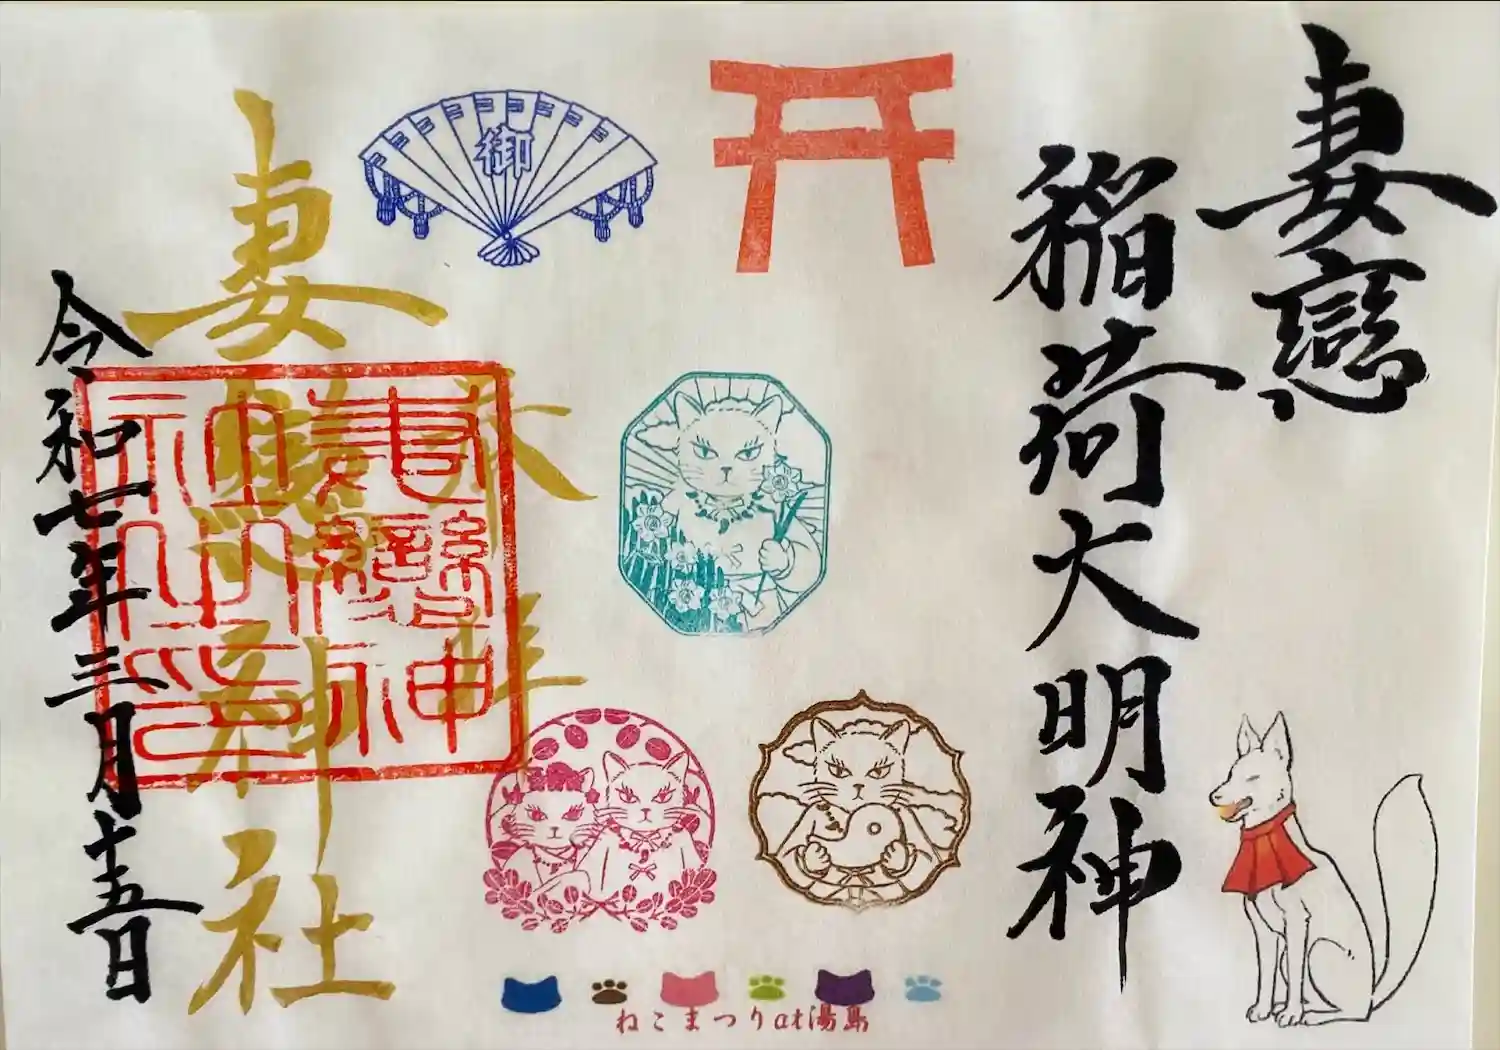 妻戀
稲荷大明神
御
奉拝
妻戀神社
妻戀神社神璽印
令和七年三月十五日
ねこまつりat湯島